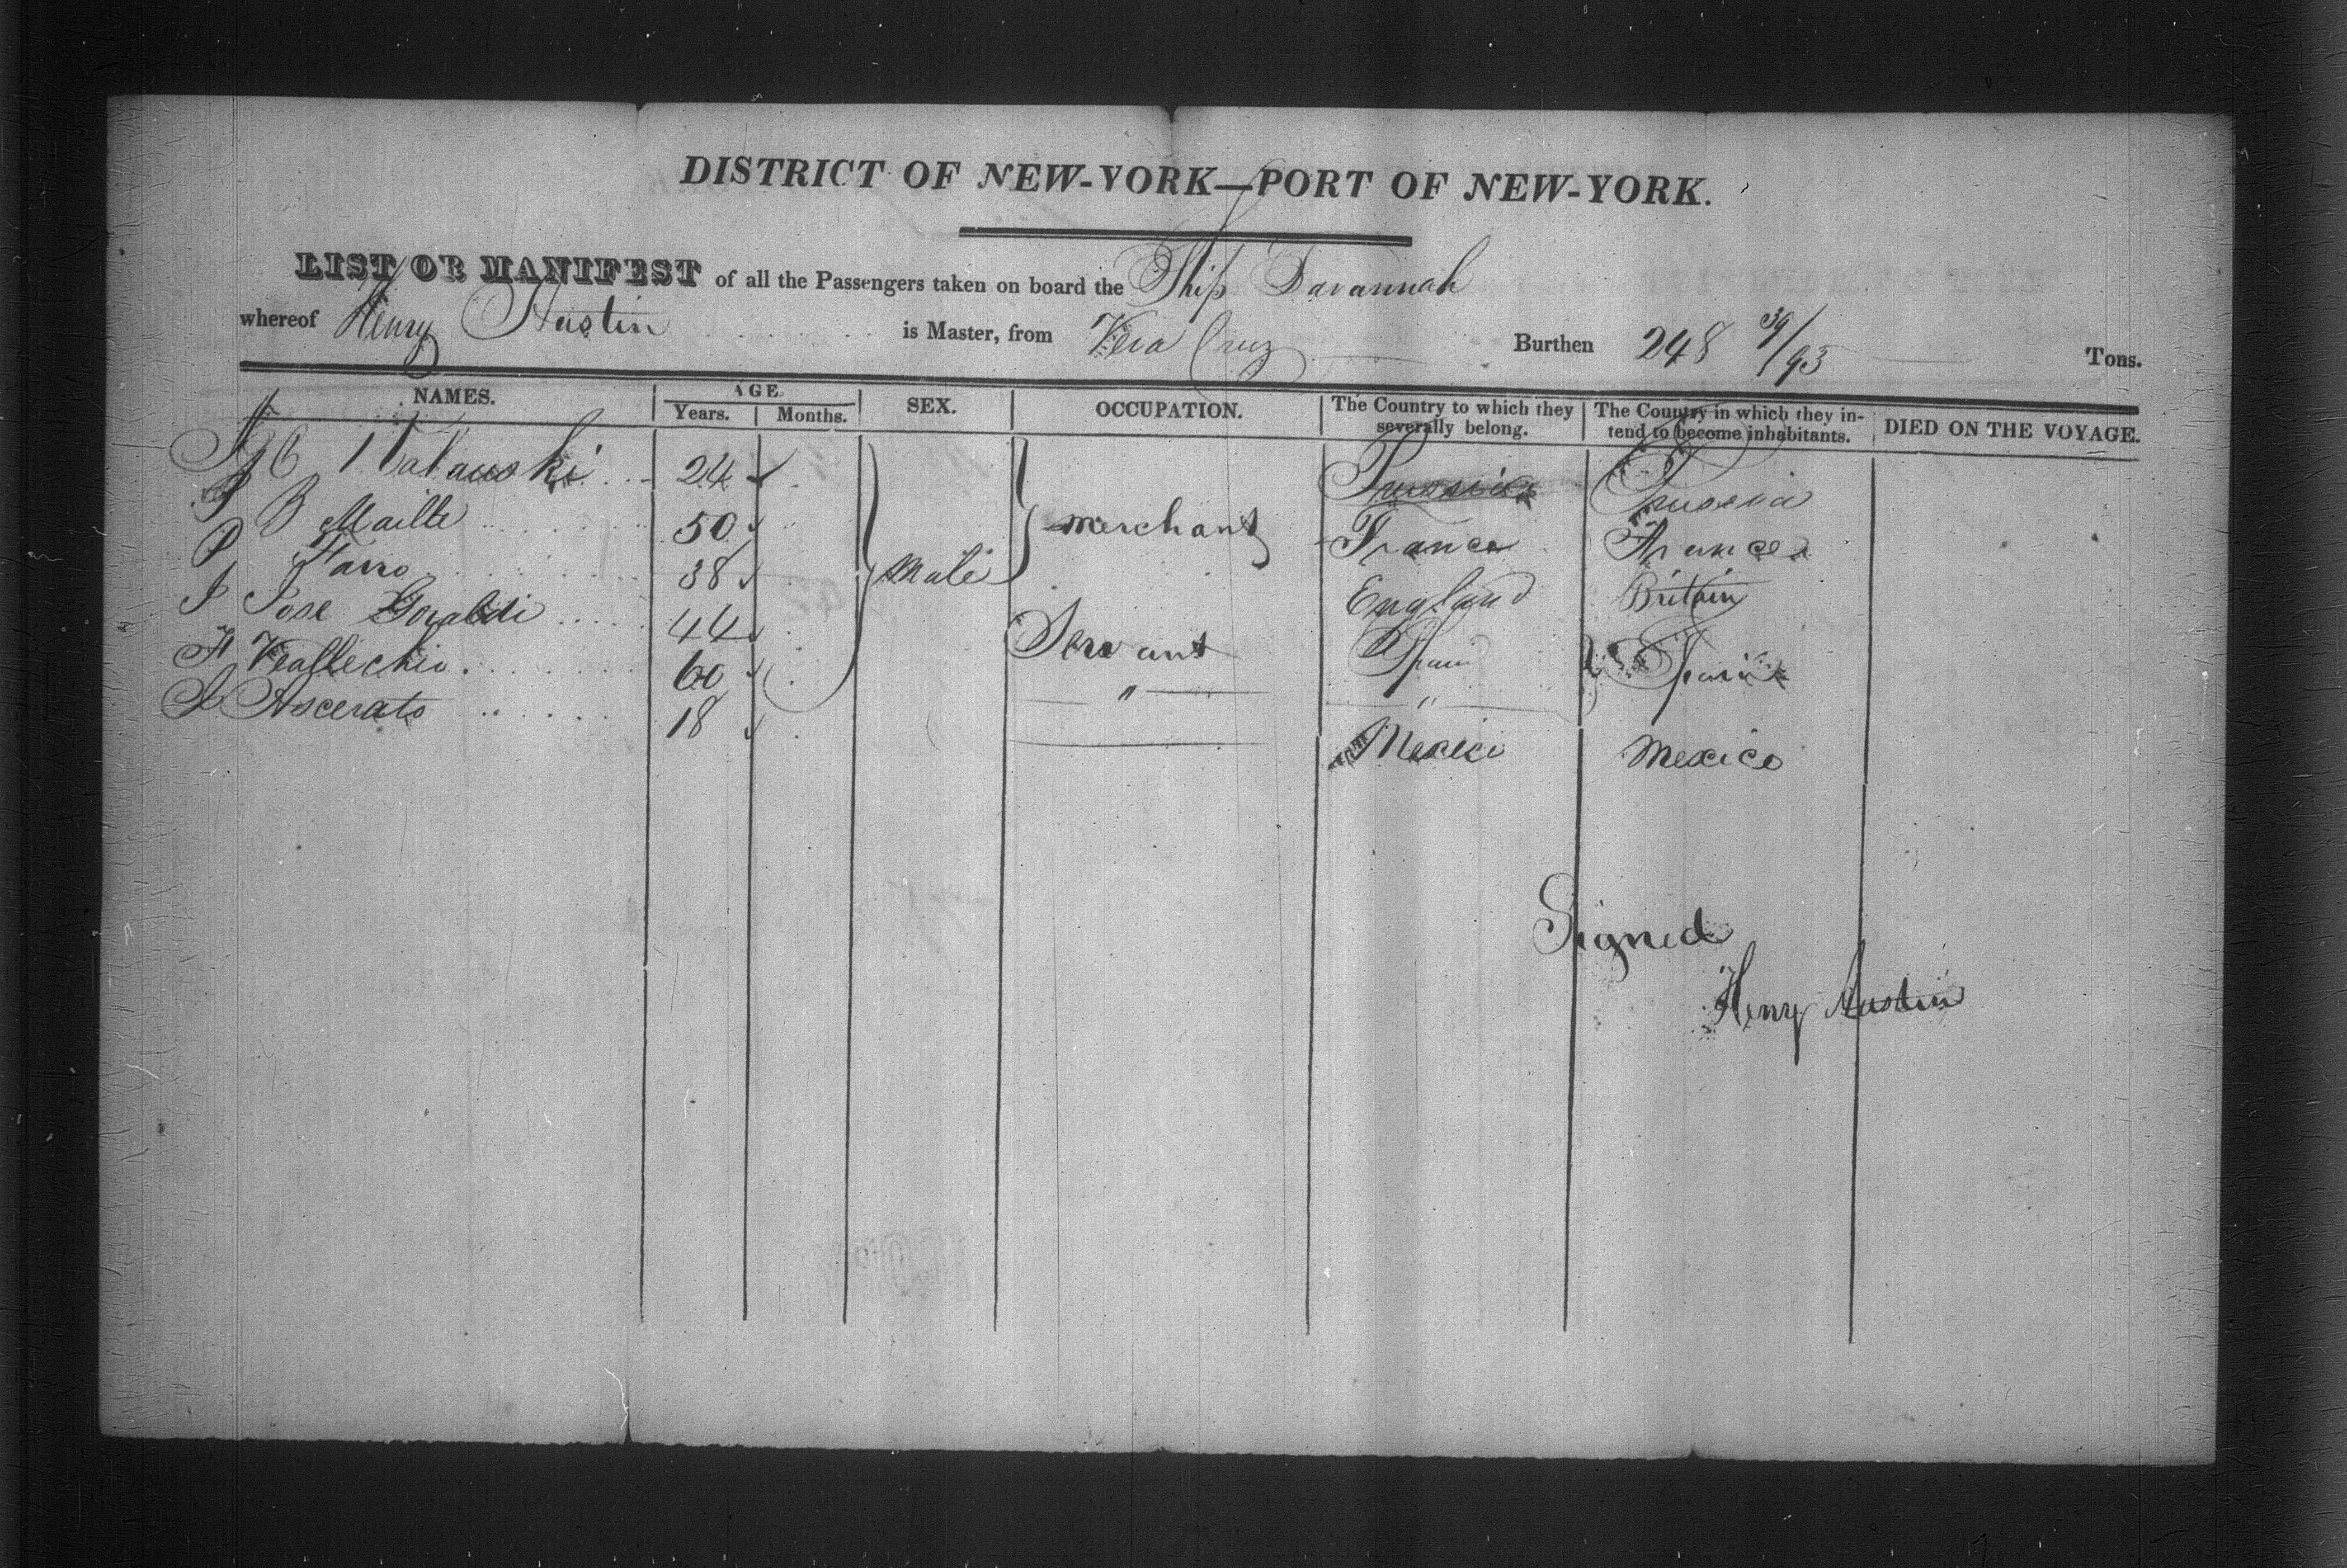 DISTRICT OF NEW-YORK—PORT OF NEW-YORK.
LIST OR MANIFEST of all the Passengers taken on board the Ship Savannah
whereof Henry Austin is Master, from Vera Cruz Burthen 248 39/95 Tons.
NAMES. AGE. Years. Months. SEX. OCCUPATION. The Country to which they severally belong. The Country in which they intend to become inhabitants. DIED ON THE VOYAGE.
24 Prussia Prussia
B Maille 50 merchant France France
P 38 Male England Britain
J Jose 44 Servant Spain Spain
60 " "
Ascerato 18 Mexico Mexico
Signed
Henry Austin